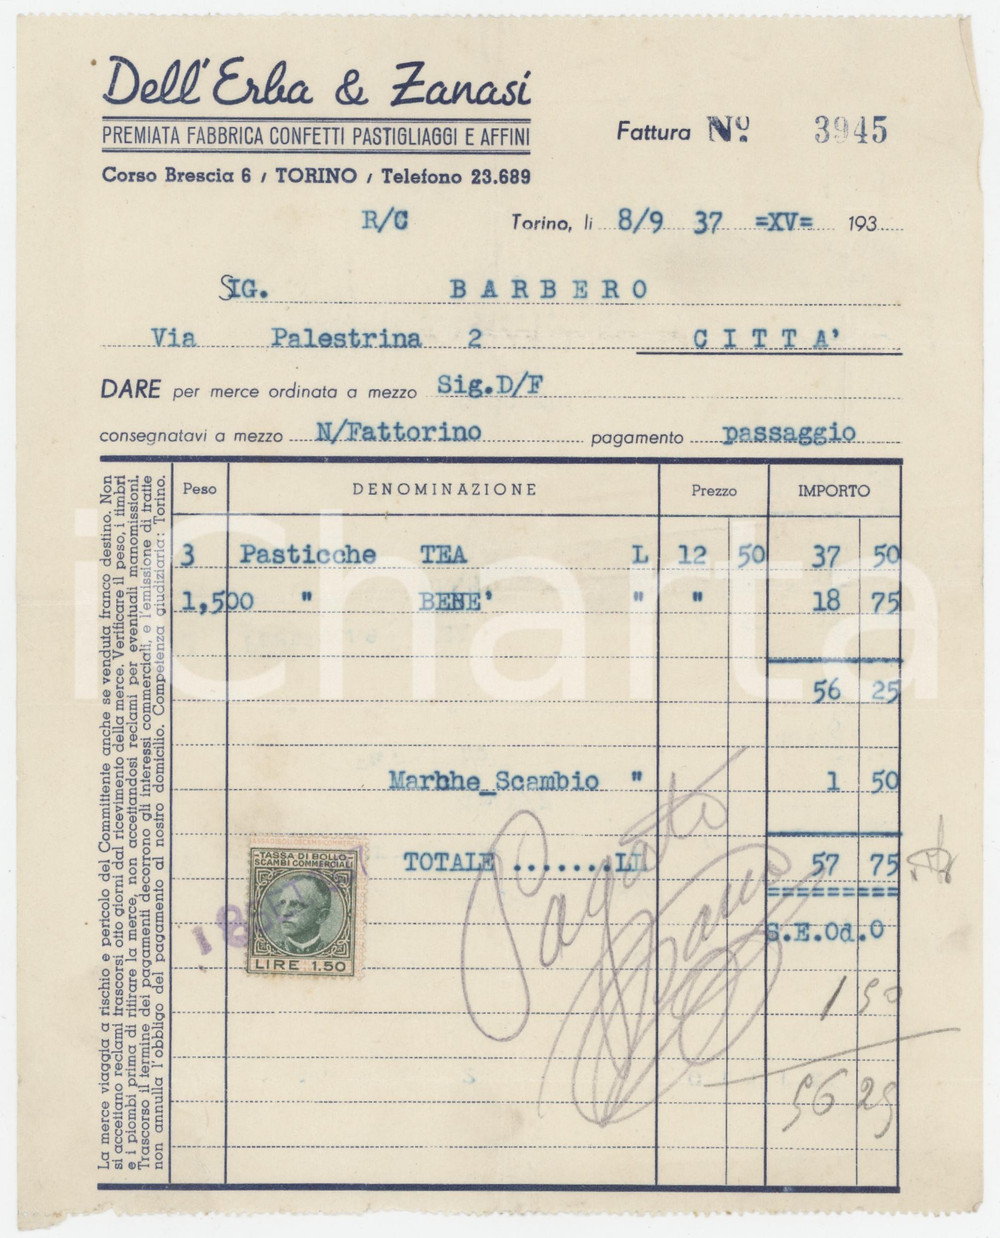 Dell'Erba & Zanasi
PREMIATA FABBRICA CONFETTI PASTIGLIAGGI E AFFINI
Corso Brescia 6 / TORINO / Telefono 23.689
Fattura Nº. 3945
R/C Torino, li 8/9 37 =XV= 193
SIG. BARBERO
Via Palestrina 2 CITTA'
DARE per merce ordinata a mezzo Sig.D/F
consegnatavi a mezzo N/Fattorino pagamento passaggio
Peso DENOMINAZIONE Prezzo IMPORTO
3 Pasticche TEA L 12 50 37 50
1,500 " BENE' " " 18 75
56 25
Marbhe_Scambio " 1 50
TOTALE ........LI 57 75
==========
S.E.Od.O
1 50
56 25
Pagato
TASSA DI BOLLO
SCAMBI COMMERCIALI
LIRE 1.50
La merce viaggia a rischio e pericolo del Committente anche se venduta franco destino. Non
si accettano reclami trascorsi otto giorni dal ricevimento della merce. Verificare il peso, i timbri
e i piombi prima di ritirare la merce, non accettandosi reclami per eventuali manomissioni.
Trascorso il termine dei pagamenti decorrono gli interessi commerciali, e l'emissione di tratte
non annulla l'obbligo del pagamento al nostro domicilio. Competenza giudiziaria: Torino.
iCharta